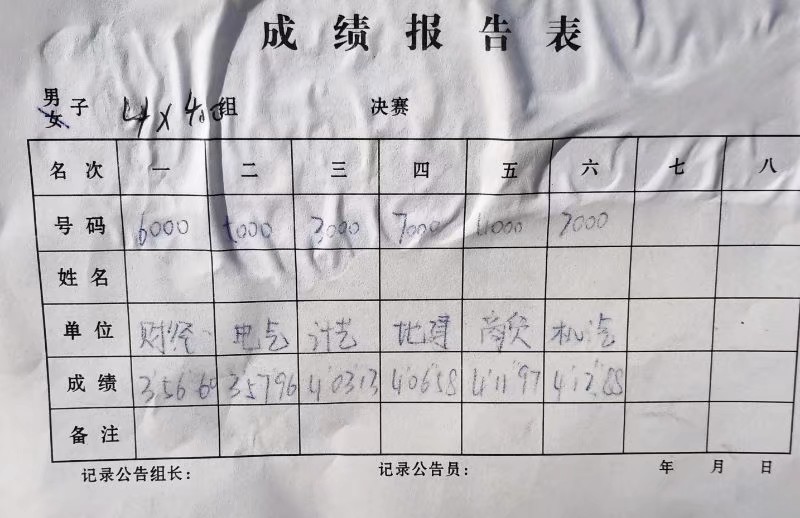 成绩报告表
男子 4×400组 决赛
女
名次 一 二 三 四 五 六 七 八
号码 6000 1000 3000 7000 11000
姓名
单位 财经 电气 计艺 地建 商贸 机汽
成绩 3'56"60 3'57"96 4'03"13 4'06"58 4'11"97 4'12"88
备注
记录公告组长： 记录公告员： 年 月 日